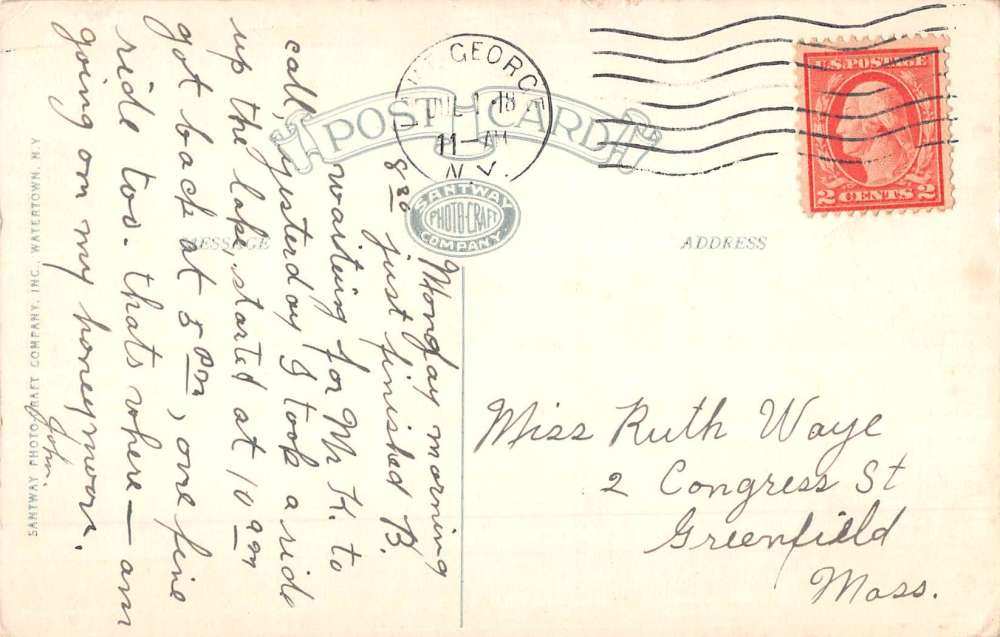 POST CARD
LAKE GEORGE
JUL 1 18
11-AM
N.Y.
U.S. POSTAGE
2 CENTS 2
SANTWAY
PHOTO-CRAFT
COMPANY.
MESSAGE
ADDRESS
SANTWAY PHOTO-CRAFT COMPANY, INC., WATERTOWN, N.Y.
Monday morning
8 30 just finished B.
waiting for Mr K. to
call, yesterday I took a ride
up the lake, started at 10 am
got back at 5 pm, one fine
ride too. thats where — am
going on my honeymoon.
John.
Miss Ruth Waye
2 Congress St
Greenfield
Mass.